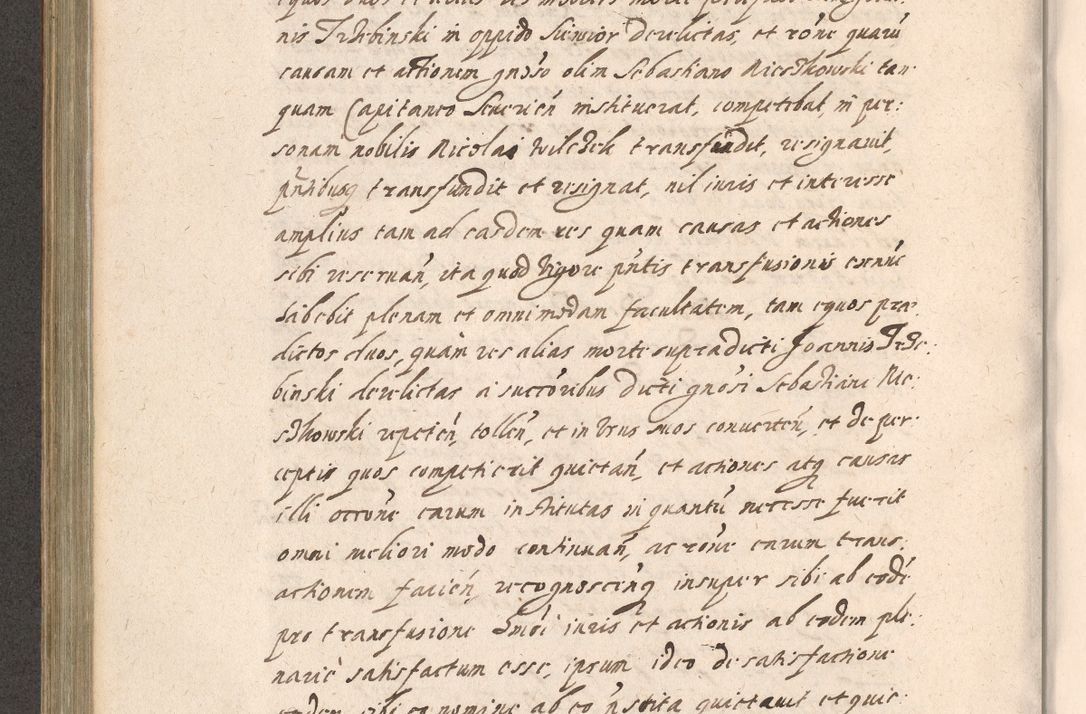 nis Trzebinski in oppido Siewior derelictas, et rõne quarũ
causam et actionem gnõso olim Sebastiano Nieszkowski tan
quam Capitaneo Severień instituerat, competebat, in per:
sonam nobilis Nicolai Wilczek transfundit, resignavit,
pñtibusq transfundit et resignat, nil iuris et interesse
amplius tam ad easdem res quam causas et actiones
sibi reservań, ita quod vigore pñtis transfusionis
habebit plenam et omnimodam facultatem, tam equos præ:
dictos duos, quam res alias morte supradicti Joannis Trze:
binski derelictas a succõribus dicti gnõsi Sebastiani Nie:
szkowski repeteń, tolleń, et in usus suos converteń, et de per:
ceptis quos competierit quietań, et actiones atq causas
illi occõne earum institutas in quantũ necesse fuerit
omni meliori modo continuań, ac rõne earum trans:
actionem facień, recognoscenq insuper sibi ab eodẽ
pro transfusione iuris et actionis ab eodem ple:
nariè satisfactum esse, ipsum ideo de satisfactione
eadem sibi eo nomine ab eo ństita quietavit et quie